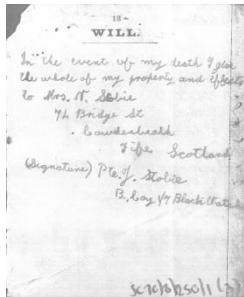 - 13 -
WILL.
In the event of my death I give
the whole of my property and effects
to Mrs. N. Stobie
74 Bridge St
Cowdenbeath
Fife Scotland
(Signature) Pte. J. Stobie
B. Coy 1/7 Black Watch